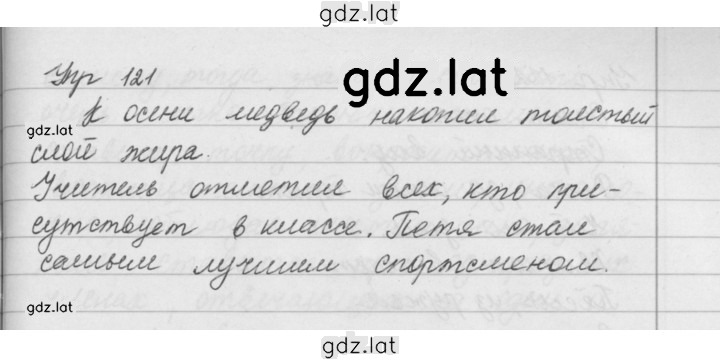 gdz.lat
Упр 121
gdz.lat
К осени медведь накопил толстый
gdz.lat
слой жира.
Учитель отметил всех, кто при-
сутствует в классе. Петя стал
самым лучшим спортсменом.
gdz.lat
gdz.lat